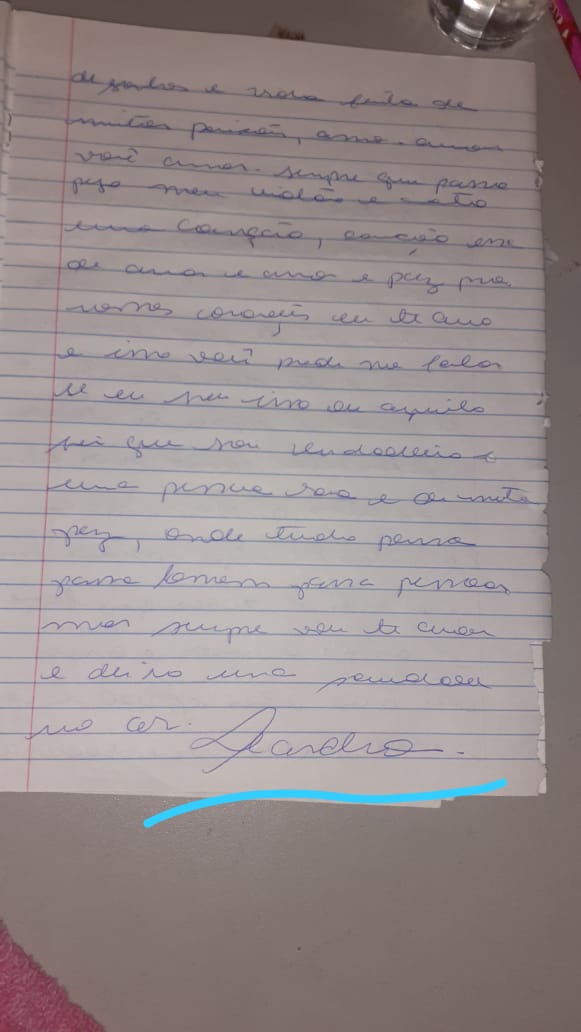 e vida feita de
muitas paixões, amo. amor
você amor. sempre que posso
pego meu violão e
uma canção, canção essa
de amor e amor e paz pra
nossos corações eu te amo
e isso você pode me falar
se eu sou isso ou aquilo
sei que sou verdadeiro e
uma pessoa rara e de muita
paz, onde tudo passa
passa homem passa pessoas
mas sempre vou te amar
e deixo uma saudade
no ar. Leandro.